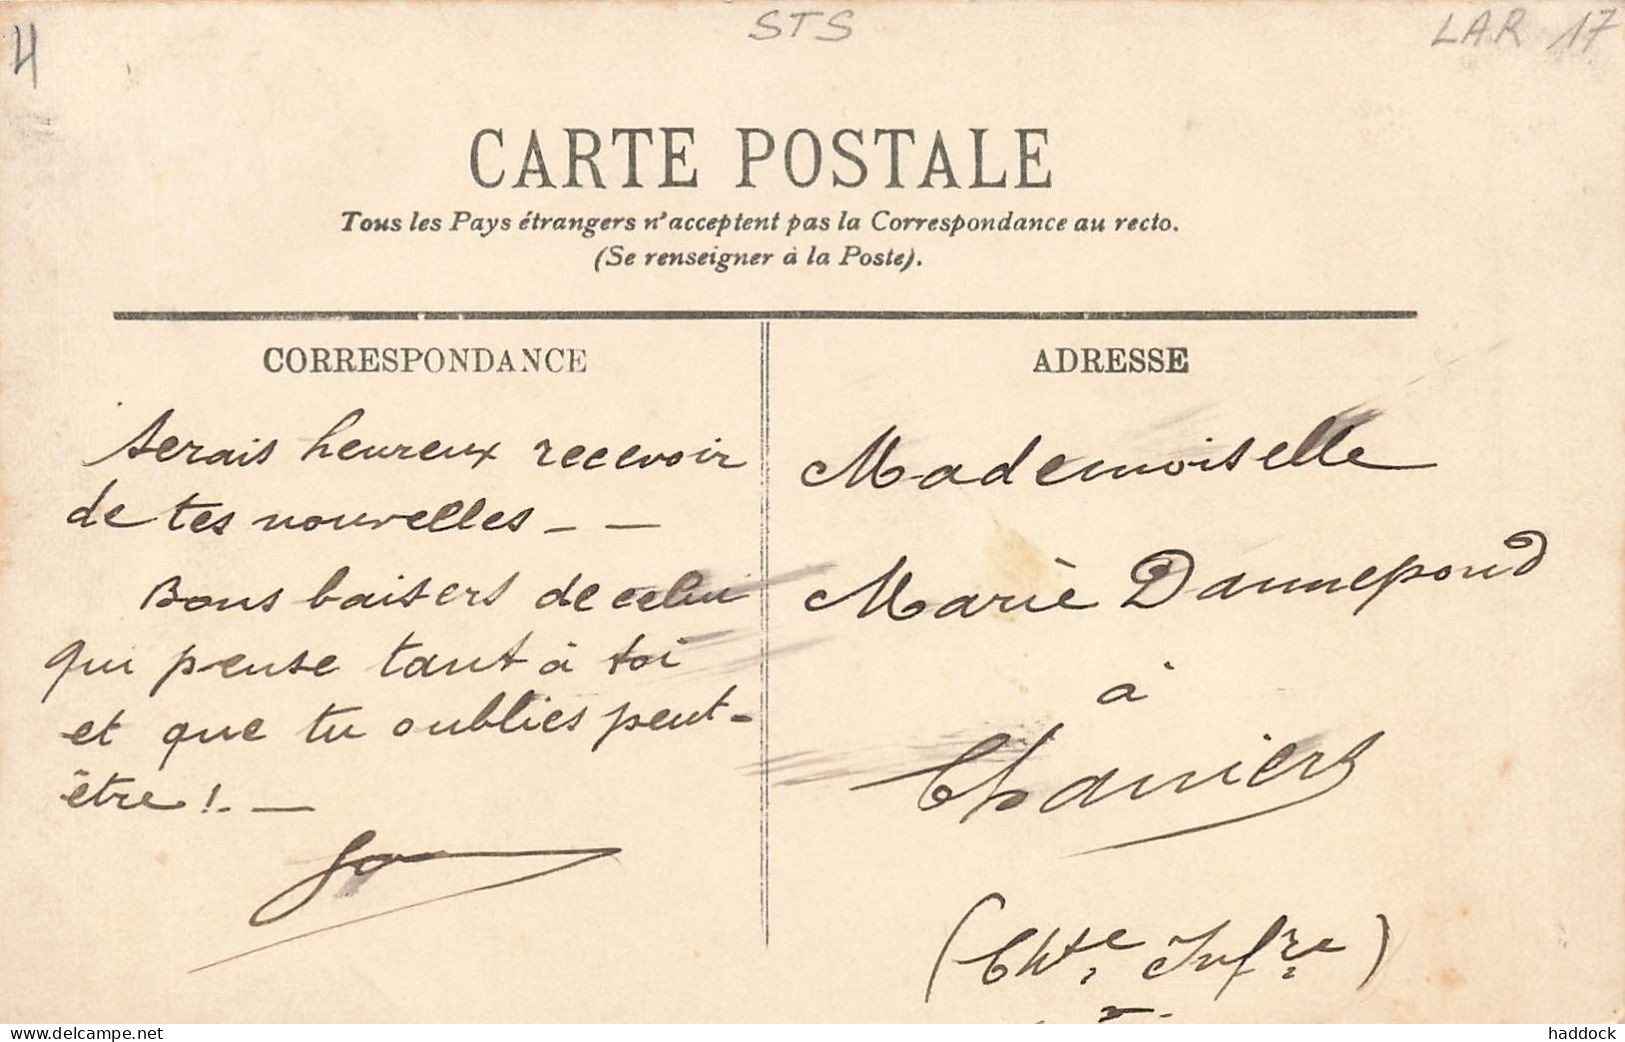 4
STS
LAR 17
CARTE POSTALE
Tous les Pays étrangers n'acceptent pas la Correspondance au recto.
(Se renseigner à la Poste).
CORRESPONDANCE
Serais heureux recevoir
de tes nouvelles - —
Bons baisers de celui
qui pense tant à toi
et que tu oublies peut-
être !. —
ADRESSE
Mademoiselle
Marie Dannepond
à
Chaniers
(Chte Infre)
www.delcampe.net
haddock